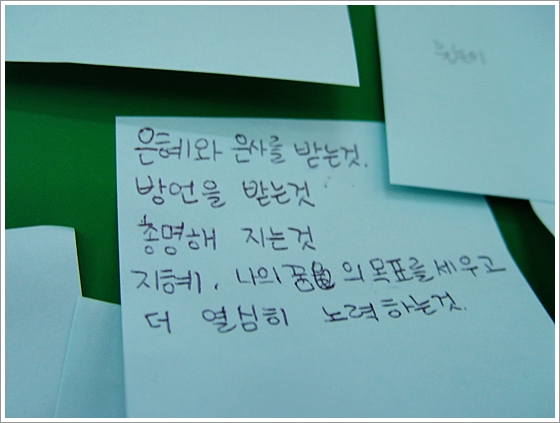 은혜와 은사를 받는것.
방언을 받는것
총명해 지는것
지혜. 나의 꿈의 목표를 세우고
더 열심히 노력하는것.